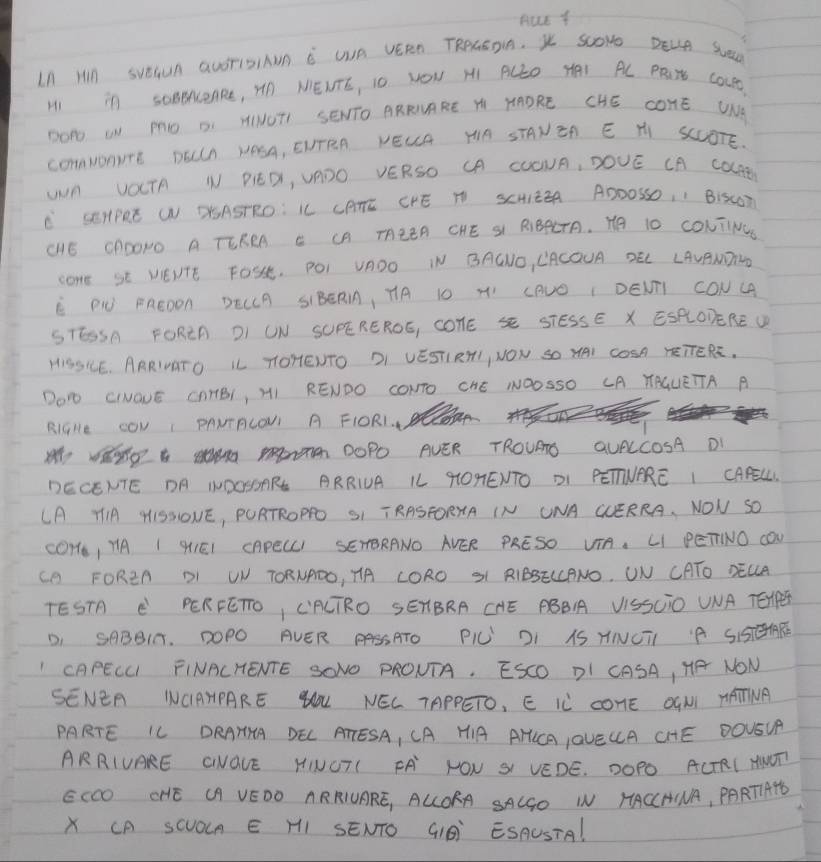 ALLE 7
LA MIA SVEGLIA QUOTIDIANA È UNA VERA TRAGEDIA. IL SUONO DELLA SVEGLIA
MI FA SOBBALZARE, MA NIENTE, IO NON MI ALZO MAI AL PRIMO COLPO.
DOPO UN PAIO DI MINUTI SENTO ARRIVARE MI MADRE CHE COME UNA
COMANDANTE DELLA NASA, ENTRA NELLA MIA STANZA E MI SCUOTE.
UNA VOLTA IN PIEDI, VADO VERSO LA CUCINA, DOVE LA COLAZION
È SEMPRE UN DISASTRO: IL LATTE CHE MI SCHIZZA ADDOSSO, I BISCOTTI
CHE CADONO A TERRA E LA TAZZA CHE SI RIBALTA. MA IO CONTINUO
COME SE NIENTE FOSSE. POI VADO IN BAGNO, L'ACQUA DEL LAVANDINO
È PIÙ FREDDA DELLA SIBERIA, MA IO MI LAVO I DENTI CON LA
STESSA FORZA DI UN SUPEREROE, COME SE STESSE X ESPLODERE UN
MISSILE. ARRIVATO IL MOMENTO DI VESTIRMI, NON SO MAI COSA METTERE.
DOPO CINQUE CAMBI, MI RENDO CONTO CHE INDOSSO LA MAGLIETTA A
RIGHE CON I PANTALONI A FIORI.
DOPO AVER TROVATO QUALCOSA DI
DECENTE DA INDOSSARE ARRIVA IL MOMENTO DI PETTINARE I CAPELLI.
LA MIA MISSIONE, PURTROPPO SI TRASFORMA IN UNA GUERRA. NON SO
COME, MA I MIEI CAPELLI SEMBRANO AVER PRESO VITA. LI PETTINO CON
LA FORZA DI UN TORNADO, MA LORO SI RIBELLANO. UN LATO DELLA
TESTA È PERFETTO, L'ALTRO SEMBRA CHE ABBIA VISSUTO UNA TEMPES
DI SABBIA. DOPO AVER PASSATO PIÙ DI 15 MINUTI A SISTEMARE
I CAPELLI FINALMENTE SONO PRONTA. ESCO DI CASA, MA NON
SENZA INCIAMPARE NEL TAPPETO, E LÌ COME OGNI MATTINA
PARTE IL DRAMMA DEL ATTESA, LA MIA AMICA, QUELLA CHE DOVEVA
ARRIVARE CINQUE MINUTI FA NON SI VEDE. DOPO ALTRI MINUTI
ECCO CHE LA VEDO ARRIVARE, ALLORA SALGO IN MACCHINA, PARTIAMO
X LA SCUOLA E MI SENTO GIÀ ESAUSTA!